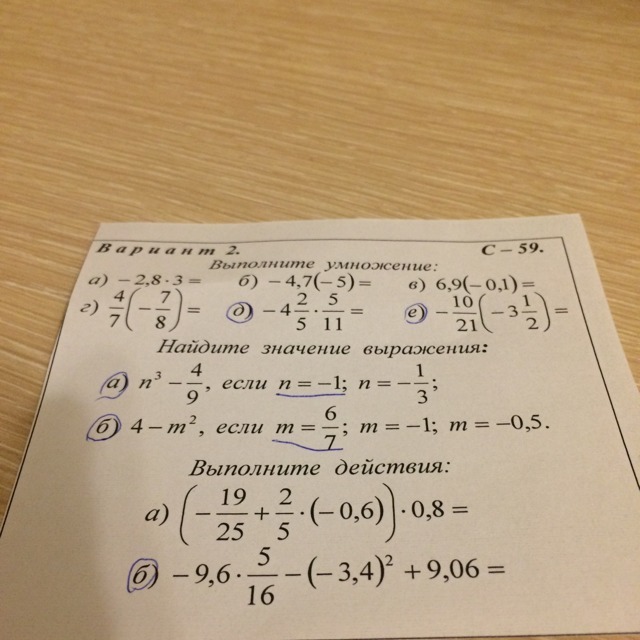 Вариант 2. С – 59.
Выполните умножение:
а) –2,8 · 3 = б) –4,7(–5) = в) 6,9(–0,1) =
г) 4/7(–7/8) = д) –4 2/5 · 5/11 = е) –10/21(–3 1/2) =
Найдите значение выражения:
а) n³ – 4/9, если n = –1; n = –1/3;
б) 4 – m², если m = 6/7; m = –1; m = –0,5.
Выполните действия:
а) (–19/25 + 2/5 · (–0,6)) · 0,8 =
б) –9,6 · 5/16 – (–3,4)² + 9,06 =